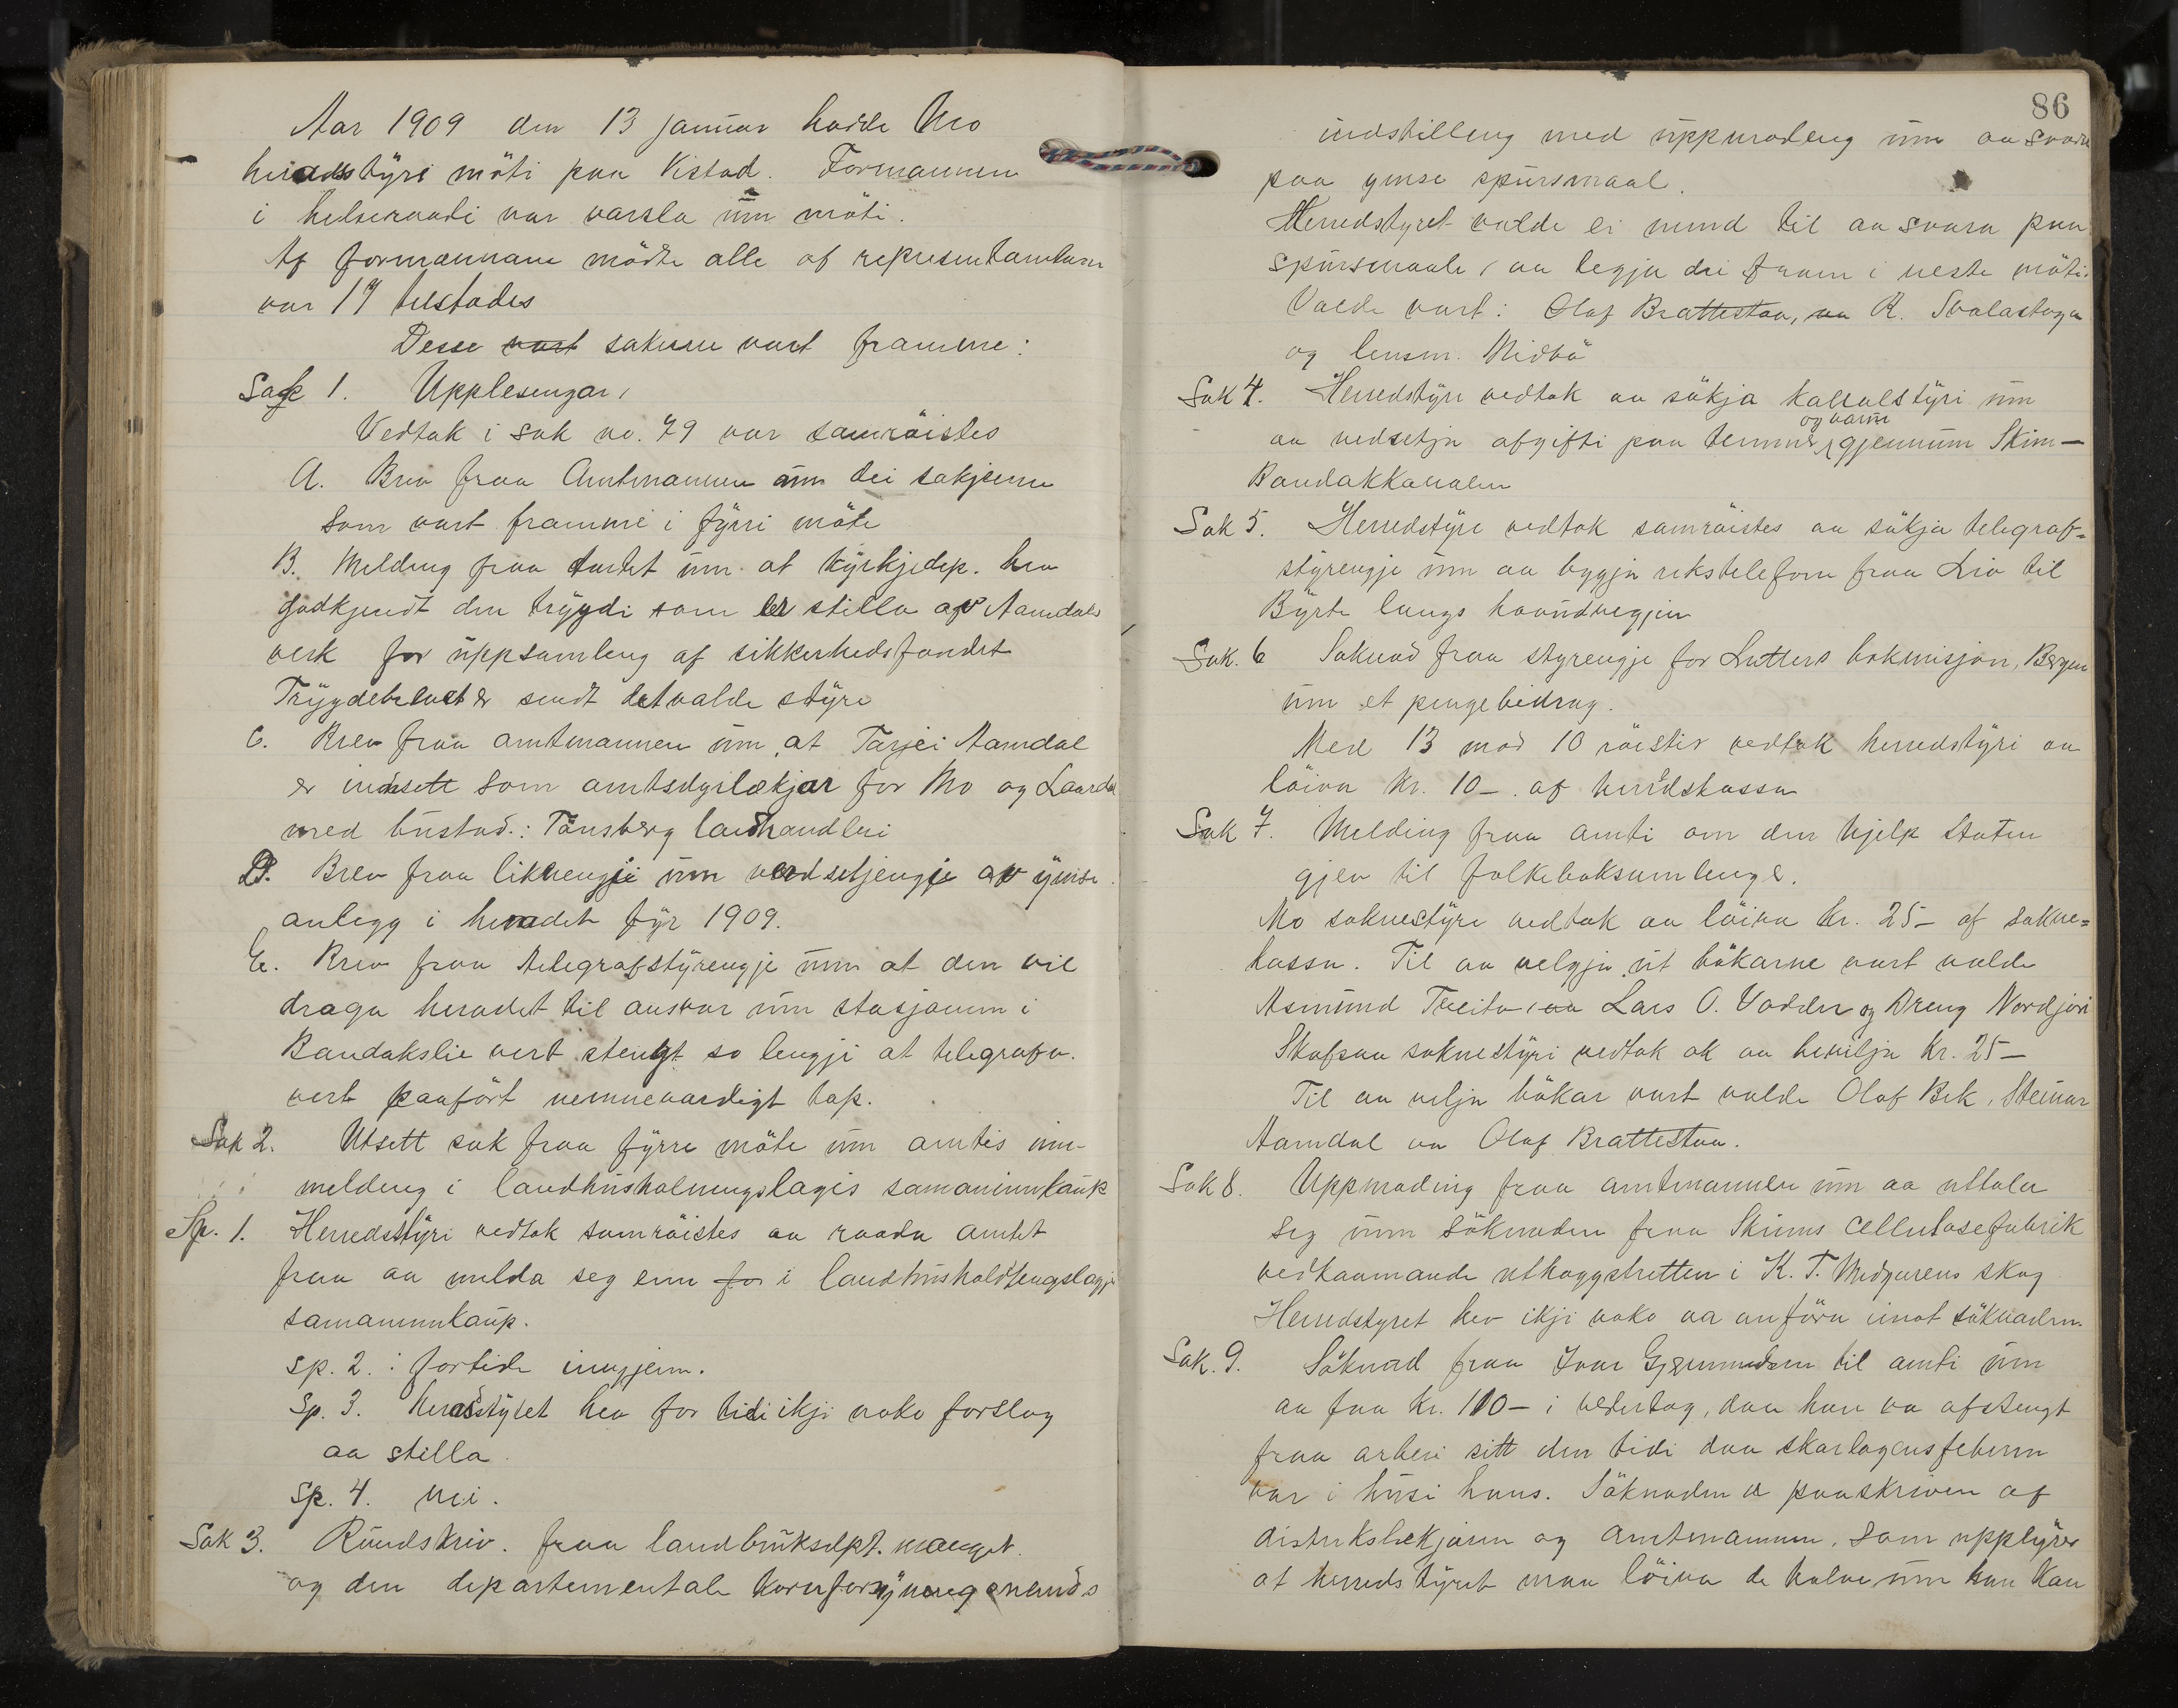 Aar 1909 den 13 januar hadde Mo
heradsstyri möti paa Vistad. Formannen
i helseraadi var varsla um möti.
Af formennane mödte alle af representantarn
var 17 tilstades
Desse vart sakerne vart framme:
Sak 1. Upplesengar,
Vedtak i sak no. 79 var samröistes
A. Brev fraa Amtmannen um dei sakjerne
som vart framme i fyrri möte
B. Melding fraa Amtet um at kyrkjedep. hev
godkjendt den trygdi som er stilla av Aamdals
verk for uppsamleng af sikkerhedsfondet
Trygdebrevet er sendt det valde styre
C. Brev fraa amtmannen um at Tarjei Aamdal
er indsett som amtsdyrlækjar for Mo og Laardal
med bustad.: Tönsberg landhandleri
D. Brev fraa liknengji um verdsetjengji av ymise
anlegg i heradet fyr 1909.
E. Brev fraa telegrafstyrengji um at den vil
draga heradet til ansvar um stasjonen i
Bandakslie vert stengt so lengji at telegrafv.
vert paafört nemnevardigt tap.
Sak 2. Utsett sak fraa fyrre möte um amtis inn-
meldeng i landhusholdningslagis samaninnkaup
Sp. 1. Herredsstyri vedtok samröistes aa raada amtet
fraa aa melda seg enn for i landhusholdsengslagji
samaninnkaup.
sp. 2. : fortide inngjenn.
Sp. 3. Heradsstyret hev for tidi ikji noko forslag
aa stilla.
Sp. 4. nei.
Sak 3. Rundskriv. fraa landbruksdept.
og den departementale kornforsynengsnemds
86
indstilleng med uppmodeng um aa svara
paa ymse spursmaal.
Herredstyret valde ei nemnd til aa svara paa
spursmaale, aa legja dei fram i neste möti.
Valde vart: Olaf Brattestaa, aa R. Svalastoga
og lensm. Midbö
Sak 4. Herredstyri vedtok aa sökja kanalstyri um
og varur
aa nedsetja afgifti paa temmer gjennum Skien-
Bandakkanalen
Sak 5. Herredstyre vedtok samröistes aa sökja telegraf-
styrengji um aa byggja rikstelefon fraa Lio til
Byrte langs hovudvegjin
Sak. 6 Soknad fraa styrengje for Lutters bokmisjon, Bergen
um et pengebidrag.
Med 13 mod 10 röister vedtok herredstyri aa
löiva Kr. 10-. af heridskassa
Sak 7. Melding fraa amti om den hjelp staten
gjev til folkeboksamlengs.
Mo soknestyre vedtok aa löiva kr. 25- af sokne-
kassa. Til aa velgja ut bökarne vart valde
Asmund Tveito, aa Lars O. Vadder og Dreng Nordjori
Skafsaa soknestyri vedtok ok aa bevilja Kr. 25-
Til aa velja bökar vart valde Olaf Bek, Steinar
Aamdal aa Olaf Brattestaa.
Sak 8. Uppmoding fraa amtmannen um aa uttala
seg um söknaden fraa Skiens Cellulosefabrik
vedkaamande uthoggstretten i K. T. skog
Herredstyret hev ikji noko aa anföra imot söknaden.
Sak. 9. Söknad fraa Ivar Gjermundsen til amti um
aa faa Kr. 110- i vederlag, daa han va afstengt
fraa arbeie sitt den tidi daa skarlagensfeberen
var i husi hans. Söknaden er paaskriven af
distrikslækjaren og amtmannen, som upplyser
at herredstyret maa löiva de halve um han kan